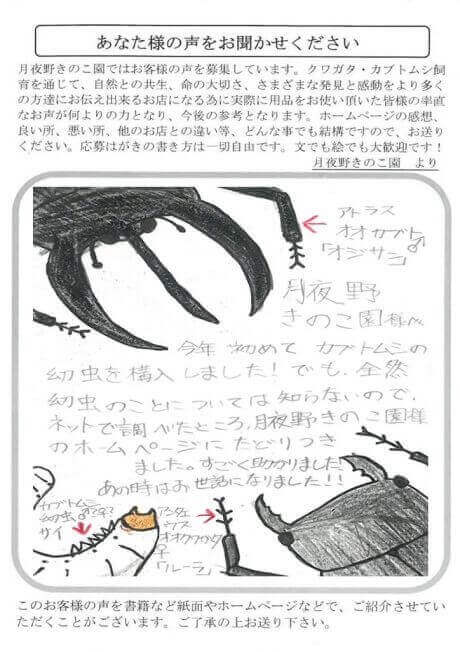 あなた様の声をお聞かせください
月夜野きのこ園ではお客様の声を募集しています。クワガタ・カブトムシ飼
育を通じて、自然との共生、命の大切さ、さまざまな発見と感動をより多く
の方達にお伝え出来るお店になる為に実際に用品をお使い頂いた皆様の率直
なお声が何よりの力となり、今後の参考となります。ホームページの感想、
良い所、悪い所、他のお店との違い等、どんな事でも結構ですので、お送り
ください。応募はがきの書き方は一切自由です。文でも絵でも大歓迎です！
月夜野きのこ園 より
アトラス
オオカブト♂
「オジサン」
月夜野
きのこ園様へ
今年初めてカブトムシの
幼虫を購入しました！でも、全然
幼虫のことについては知らないので、
ネットで調べたところ、月夜野きのこ園様
のホームページにたどりつき
ました。すごく助かりました！
あの時はお世話になりました！！
カブトムシ
幼虫
サイ
オオクワガタ
「ルーラ」
このお客様の声を書籍など紙面やホームページなどで、ご紹介させてい
ただくことがございます。ご了承の上お送り下さい。